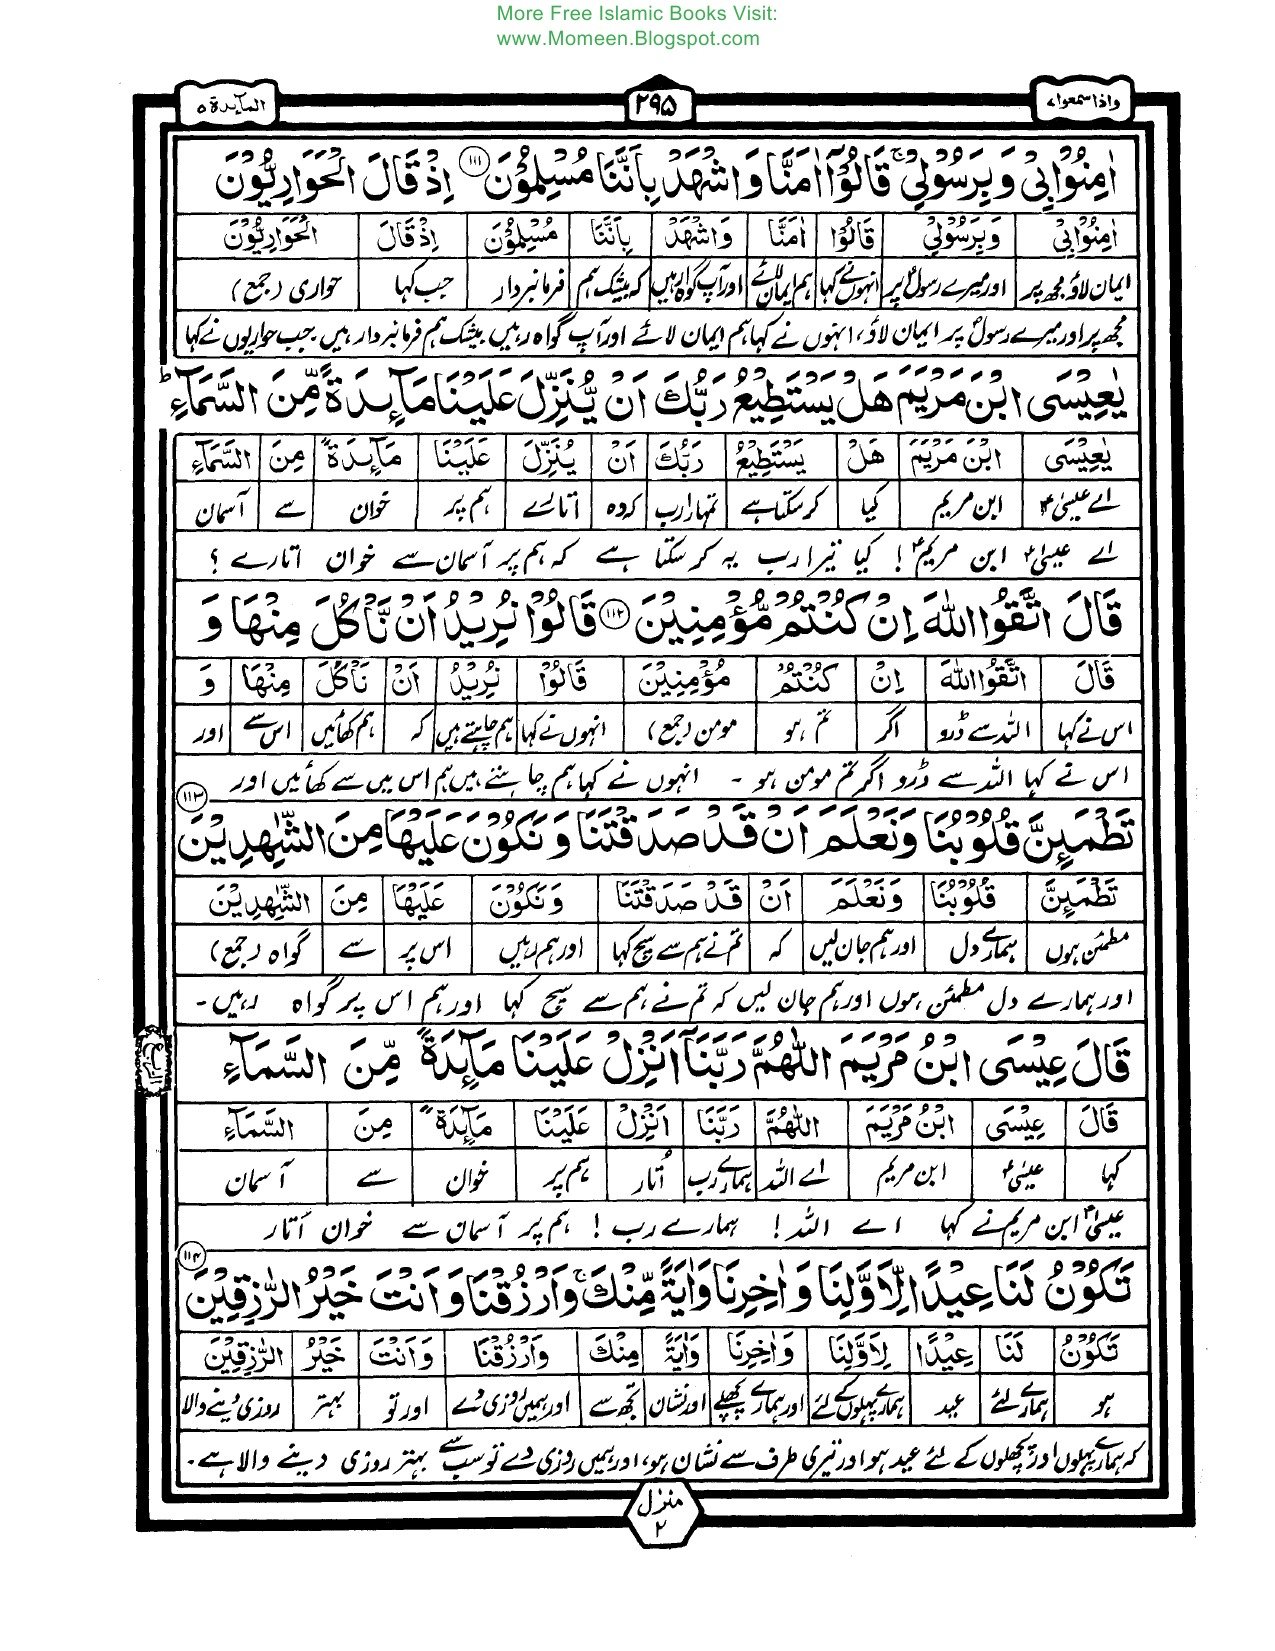 More Free Islamic Books Visit:
www.Momeen.Blogspot.com
واذا سمعوا ٧ ٢٩٥ المآيدة ٥
اٰمِنُوْا بِیْ وَ بِرَسُوْلِیْ ۚ قَالُوْۤا اٰمَنَّا وَ اشْهَدْ بِاَنَّنَا مُسْلِمُوْنَ ﴿۱۱۱﴾ اِذْ قَالَ الْحَوَارِیُّوْنَ
اٰمِنُوْا بِیْ وَ بِرَسُوْلِیْ قَالُوْا اٰمَنَّا وَ اشْهَدْ بِاَنَّنَا مُسْلِمُوْنَ اِذْ قَالَ الْحَوَارِیُّوْنَ
ایمان لاؤ مجھ پر اور میرے رسولؐ پر انہوں نے کہا ہم ایمان لائے اور آپ گواہ رہیں کہ بیشک ہم فرمانبردار جب کہا حواری (جمع)
مجھ پر اور میرے رسولؐ پر ایمان لاؤ، انہوں نے کہا ہم ایمان لائے اور آپ گواہ رہیں بیشک ہم فرمانبردار ہیں جب حواریوں نے کہا
یٰعِیْسَی ابْنَ مَرْیَمَ هَلْ یَسْتَطِیْعُ رَبُّكَ اَنْ یُّنَزِّلَ عَلَیْنَا مَآىِٕدَةً مِّنَ السَّمَآءِ ؕ
یٰعِیْسَی ابْنَ مَرْیَمَ هَلْ یَسْتَطِیْعُ رَبُّكَ اَنْ یُنَزِّلَ عَلَیْنَا مَآىِٕدَةً مِنَ السَّمَآءِ
اے عیسیٰؑ ابن مریم کیا کر سکتا ہے تمہارا رب کہ وہ اتارے ہم پر خوان سے آسمان
اے عیسیٰؑ ابن مریمؑ! کیا تیرا رب یہ کر سکتا ہے کہ ہم پر آسمان سے خوان اتارے ؟
قَالَ اتَّقُوا اللّٰهَ اِنْ كُنْتُمْ مُّؤْمِنِیْنَ ﴿۱۱۲﴾ قَالُوْا نُرِیْدُ اَنْ نَّاْكُلَ مِنْهَا وَ
قَالَ اتَّقُوا اللّٰهَ اِنْ كُنْتُمْ مُؤْمِنِیْنَ قَالُوْا نُرِیْدُ اَنْ نَاْكُلَ مِنْهَا وَ
اس نے کہا اللہ سے ڈرو اگر تم ہو مومن (جمع) انہوں نے کہا ہم چاہتے ہیں کہ ہم کھائیں اس سے اور
اس نے کہا اللہ سے ڈرو اگر تم مومن ہو - انہوں نے کہا ہم چاہتے ہیں ہم اس میں سے کھائیں اور
تَطْمَىِٕنَّ قُلُوْبُنَا وَ نَعْلَمَ اَنْ قَدْ صَدَقْتَنَا وَ نَكُوْنَ عَلَیْهَا مِنَ الشّٰهِدِیْنَ ﴿۱۱۳﴾
تَطْمَىِٕنَّ قُلُوْبُنَا وَ نَعْلَمَ اَنْ قَدْ صَدَقْتَنَا وَ نَكُوْنَ عَلَیْهَا مِنَ الشّٰهِدِیْنَ
مطمئن ہوں ہمارے دل اور ہم جان لیں کہ تم نے ہم سے سچ کہا اور ہم رہیں اس پر سے گواہ (جمع)
اور ہمارے دل مطمئن ہوں اور ہم جان لیں کہ تم نے ہم سے سچ کہا اور ہم اس پر گواہ رہیں -
قَالَ عِیْسَی ابْنُ مَرْیَمَ اللّٰهُمَّ رَبَّنَاۤ اَنْزِلْ عَلَیْنَا مَآىِٕدَةً مِّنَ السَّمَآءِ
الربع
قَالَ عِیْسَی ابْنُ مَرْیَمَ اللّٰهُمَّ رَبَّنَا اَنْزِلْ عَلَیْنَا مَآىِٕدَةً مِنَ السَّمَآءِ
کہا عیسیٰؑ ابن مریم اے اللہ ہمارے رب اُتار ہم پر خوان سے آسمان
عیسیٰؑ ابن مریم نے کہا اے اللہ! ہمارے رب! ہم پر آسمان سے خوان اُتار
تَكُوْنُ لَنَا عِیْدًا لِّاَوَّلِنَا وَ اٰخِرِنَا وَ اٰیَةً مِّنْكَ ۚ وَ ارْزُقْنَا وَ اَنْتَ خَیْرُ الرّٰزِقِیْنَ ﴿۱۱۴﴾
تَكُوْنُ لَنَا عِیْدًا لِاَوَّلِنَا وَ اٰخِرِنَا وَ اٰیَةً مِنْكَ وَ ارْزُقْنَا وَ اَنْتَ خَیْرُ الرّٰزِقِیْنَ
ہو ہمارے لئے عید ہمارے پہلوں کے لئے اور ہمارے پچھلے اور نشان تجھ سے اور ہمیں روزی دے اور تو بہتر روزی دینے والا
کہ ہمارے پہلوں اور پچھلوں کے لئے عید ہو اور تیری طرف سے نشان ہو، اور ہمیں روزی دے تو سب سے بہتر روزی دینے والا ہے۔
منزل ٢